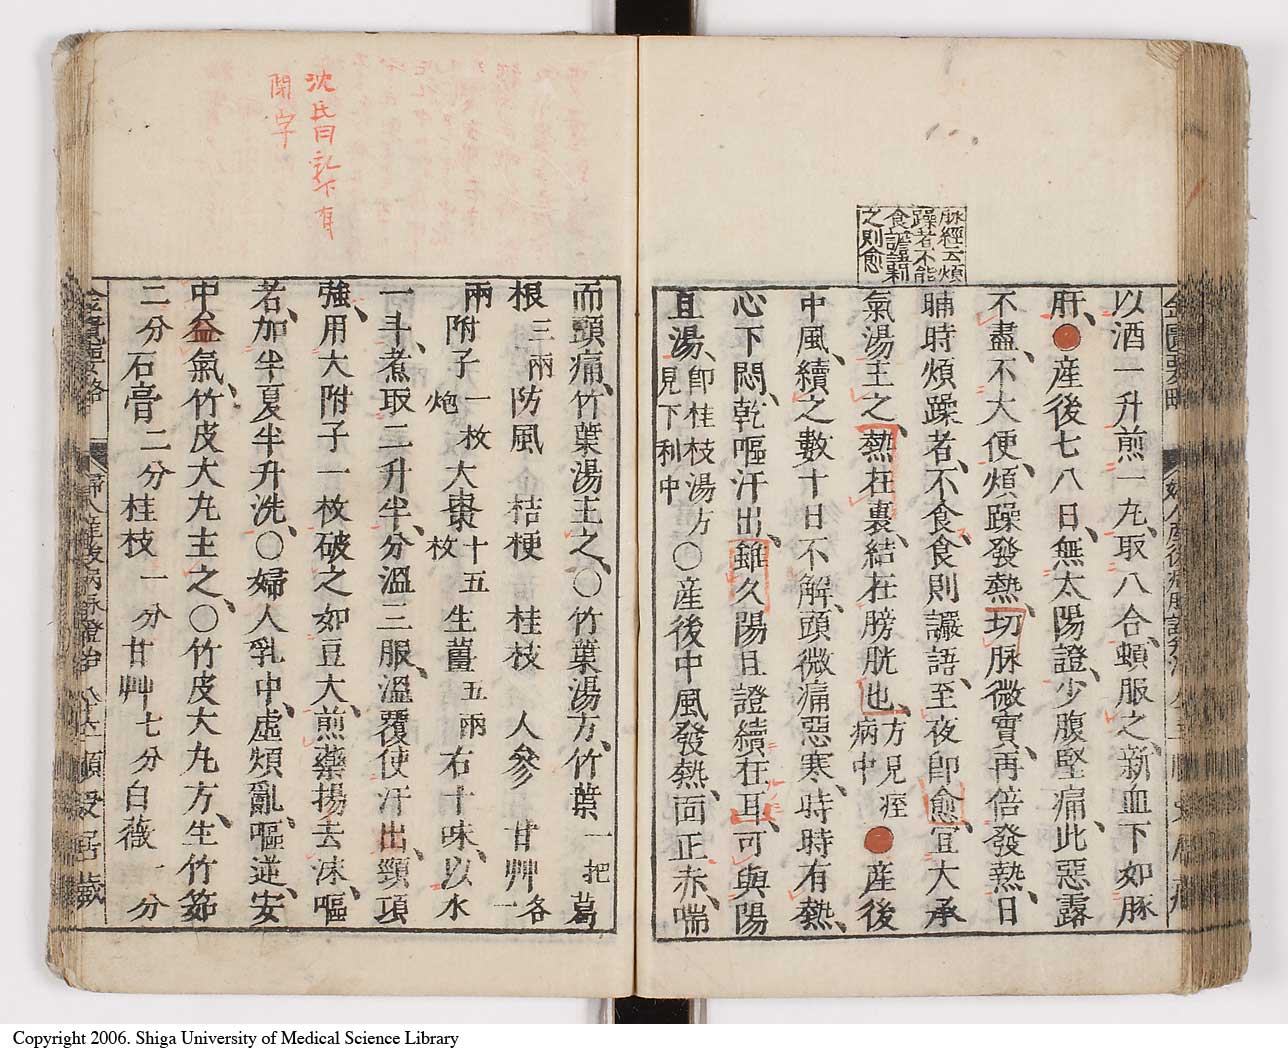 脉經云煩
躁者不能
食譫語利
之則愈
以酒一升煎一丸取八合頓服之新血下如豚
肝●産後七八日無太陽證少腹堅痛此惡露
不盡不大便煩躁發熱切脉微實再倍發熱日
晡時煩躁者不食食則讝語至夜即愈宜大承
氣湯主之熱在裏結在膀胱也方見痓病中●産後
中風續之數十日不解頭微痛惡寒時時有熱
心下悶乾嘔汗出雖久陽旦證續在耳可與陽
旦湯即桂枝湯方見下利中〇産後中風發熱面正赤喘
沈氏曰乳下有
閑字
而頭痛竹葉湯主之〇竹葉湯方竹葉一把葛
根三兩防風 桔梗 桂枝 人參 甘艸各一
兩附子一枚炮大棗十五枚生薑五兩右十味以水
一斗煮取二升半分溫三服溫覆使汗出頸項
強用大附子一枚破之如豆大煎藥揚去沫嘔
者加半夏半升洗〇婦人乳中虛煩亂嘔逆安
中益氣竹皮大丸主之〇竹皮大丸方生竹茹
二分石膏二分桂枝一分甘艸七分白薇一分
Copyright 2006. Shiga University of Medical Science Library